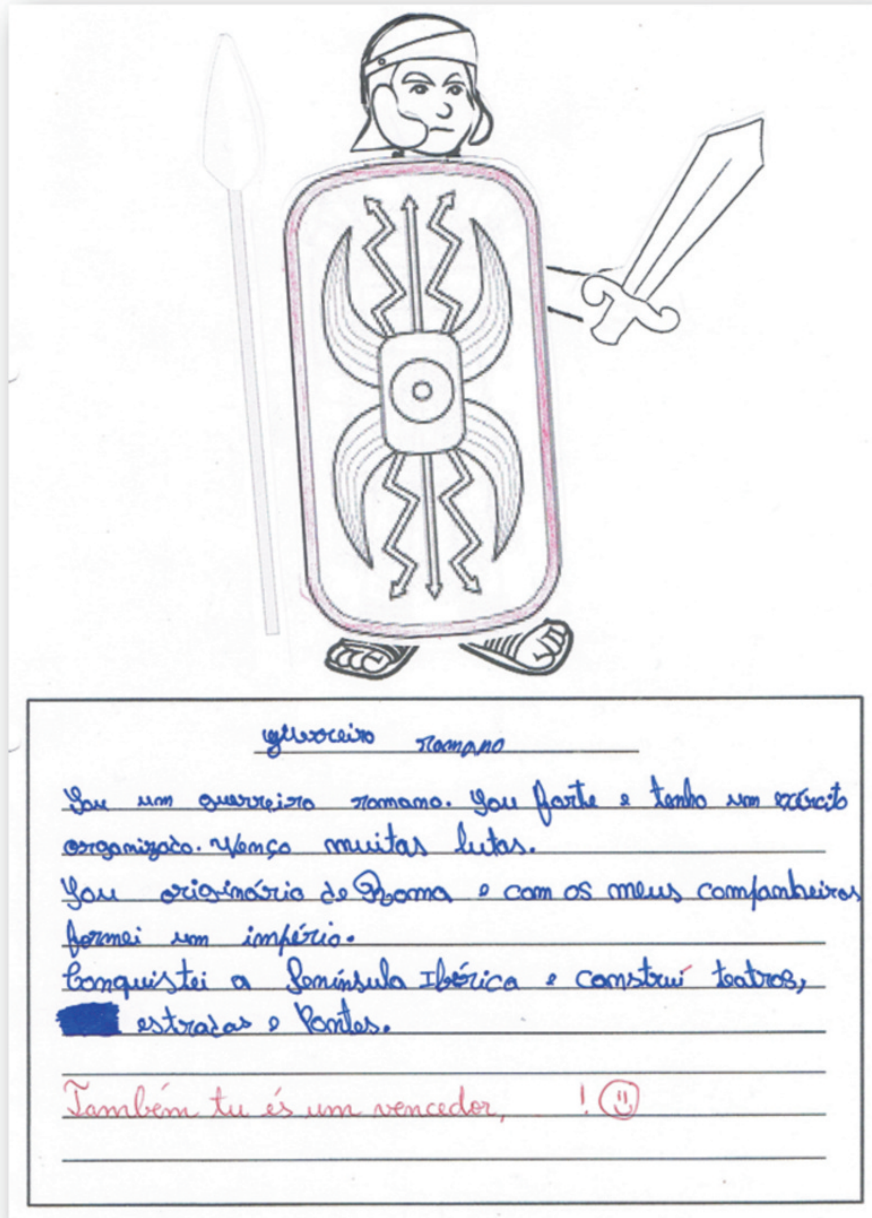 guerreiro romano
Sou um guerreiro romano. Sou forte e tenho um exército
organizado. Venço muitas lutas.
Sou originário de Roma e com os meus companheiros
formei um império.
Conquistei a Península Ibérica e construí teatros,
estradas e Pontes.
Também tu és um vencedor, !